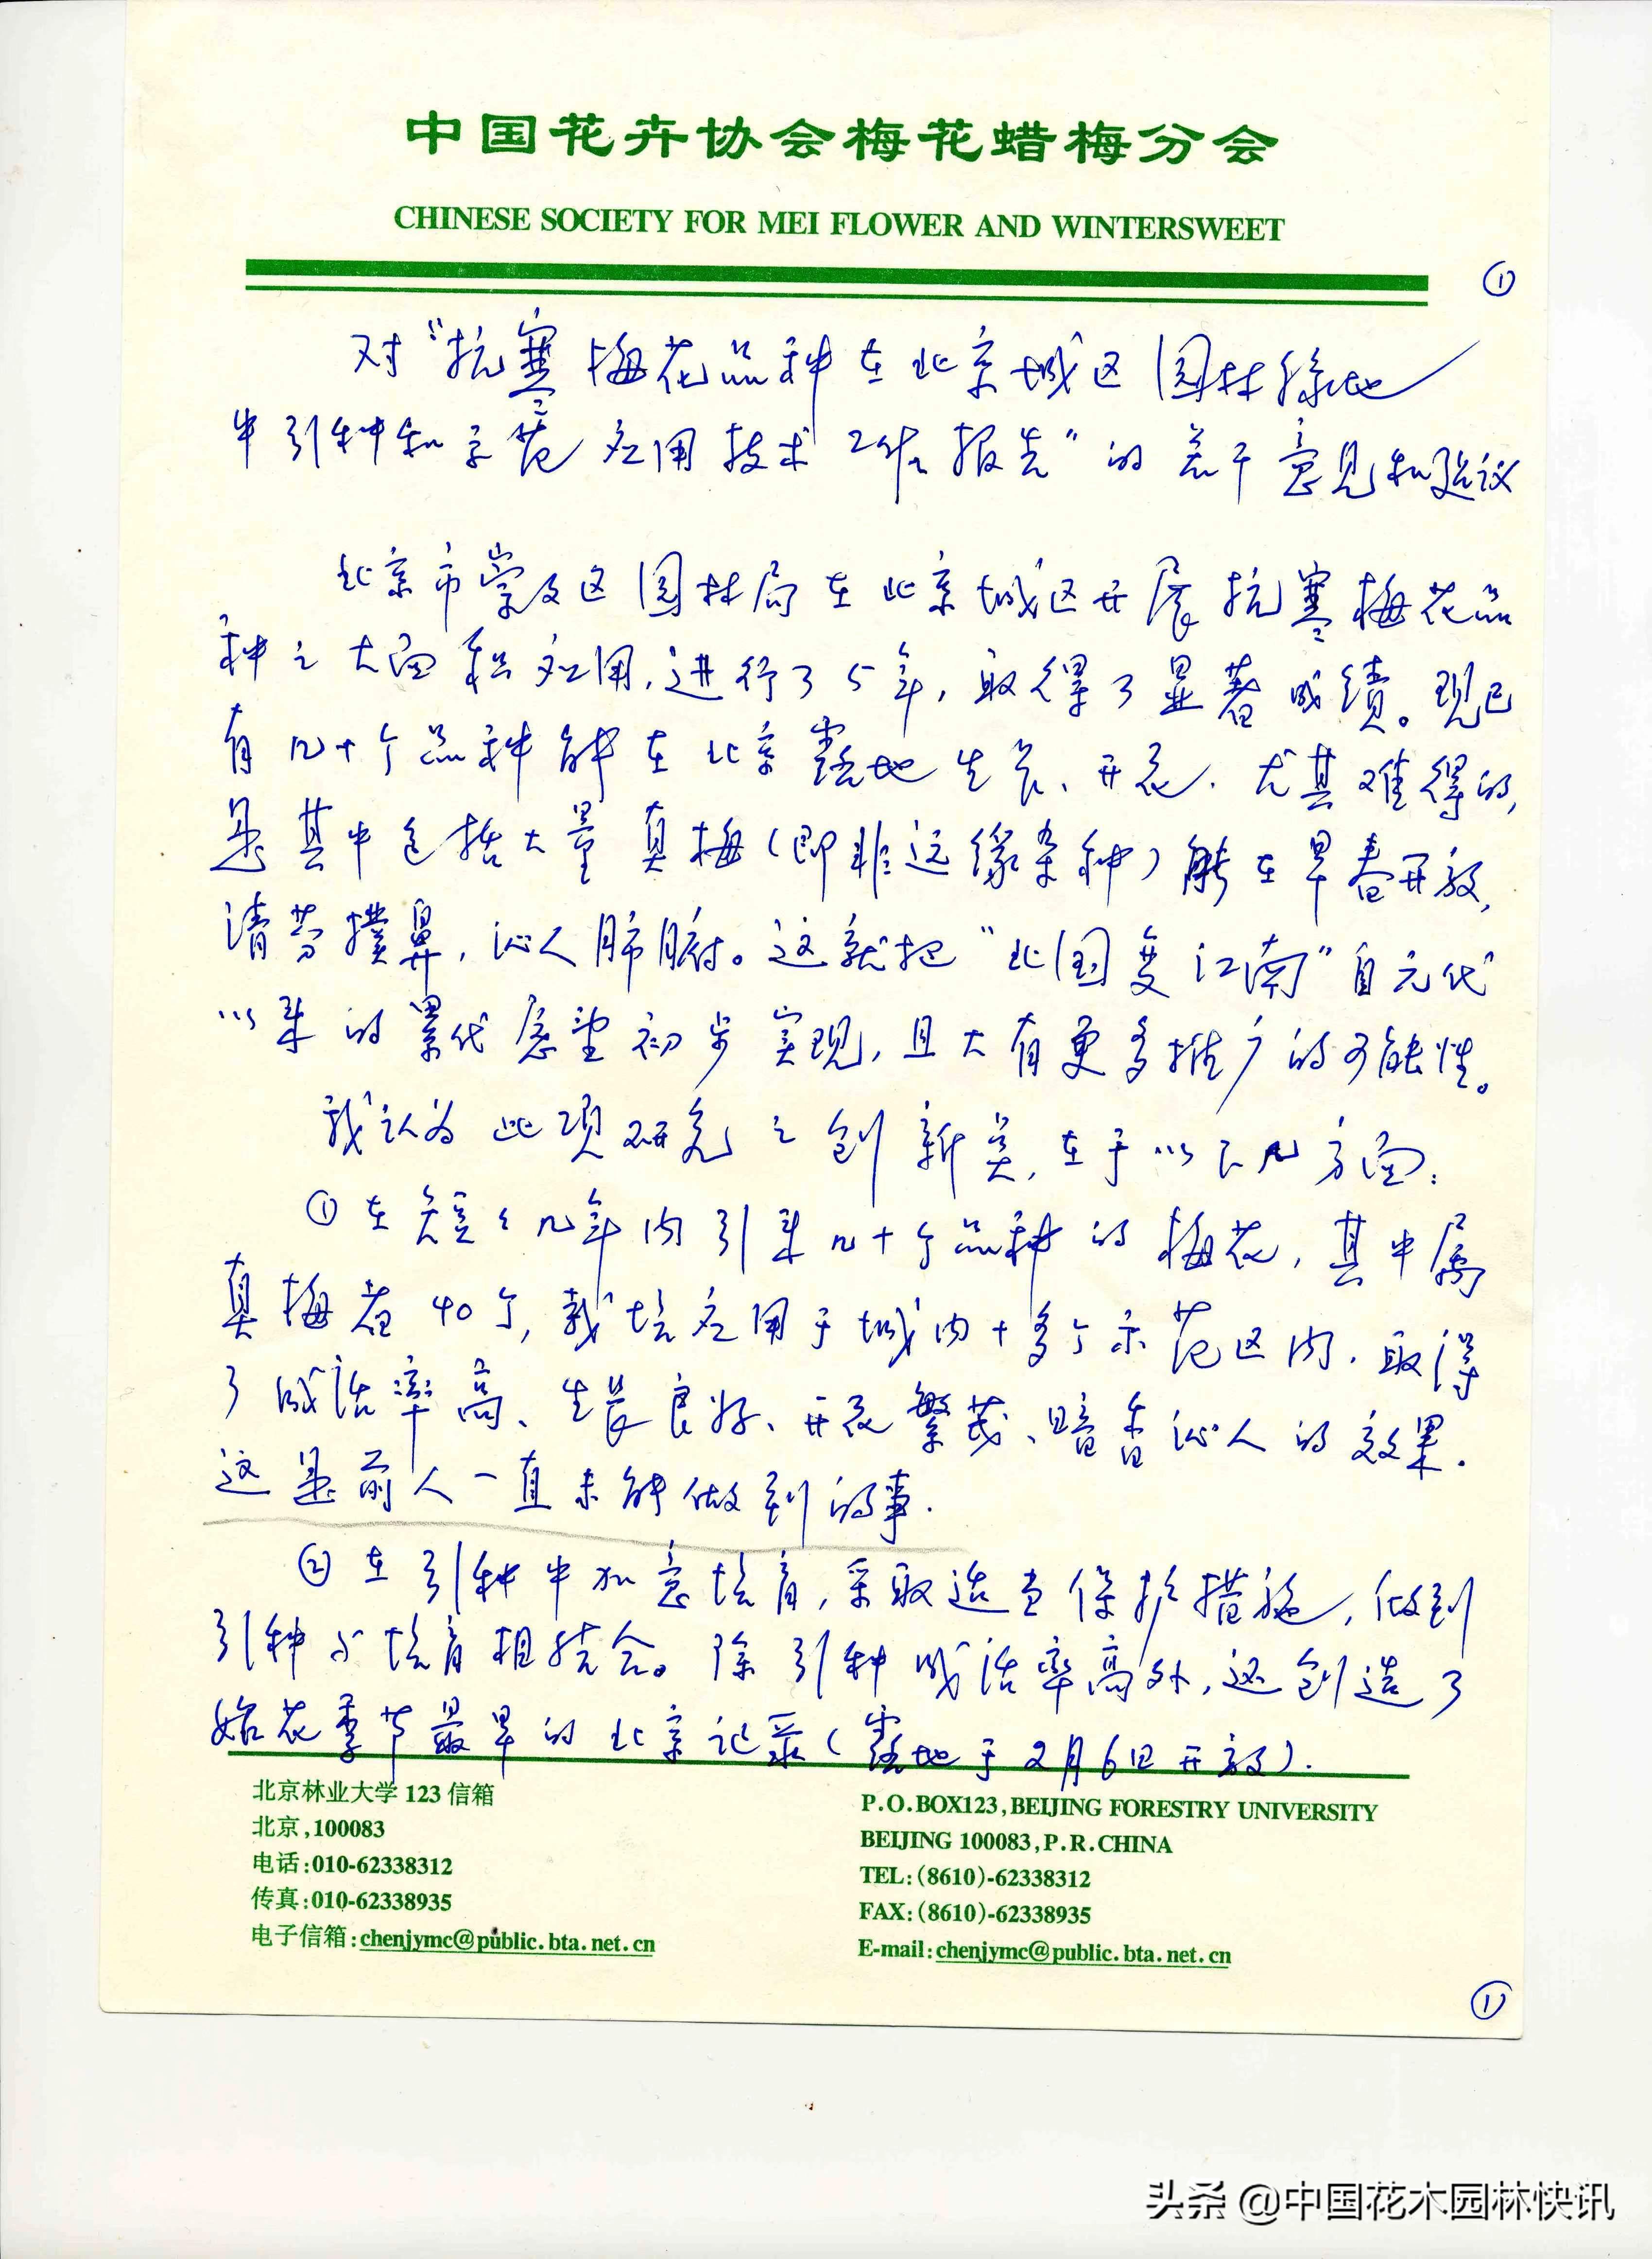 中国花卉协会梅花蜡梅分会
CHINESE SOCIETY FOR MEI FLOWER AND WINTERSWEET
①
对“抗寒梅花品种在北京城区园林绿地
中引种和示范应用技术工作报告”的若干意见和建议
北京市崇文区园林局在北京城区开展抗寒梅花品
种之大面积应用,进行了5年,取得了显著成绩。现已
有几十个品种能在北京露地生长、开花.尤其难得的,
是其中包括大量真梅(即非远缘杂种)能在早春开放,
清芬扑鼻,沁人肺腑。这就把“北国变江南”自元代
以来的累代愿望初步实现,且大有更多推广的可能性。
我认为此项研究之创新点,在于以下几方面:
①在短短几年内引来几十个品种的梅花,其中属
真梅者40个,栽培应用于城内十多个示范区内.取得
了成活率高、生长良好、开花繁茂、暗香沁人的效果.
这是前人一直未能做到的事.
②在引种中加意培育,采取适当保护措施,做到
引种与培育相结合。除引种成活率高外,还创造了
始花季节最早的北京记录(露地于2月6日开放).
北京林业大学123信箱
北京,100083
电话:010-62338312
传真:010-62338935
电子信箱:chenjymc@public.bta.net.cn
P.O.BOX123,BEIJING FORESTRY UNIVERSITY
BEIJING 100083,P.R.CHINA
TEL:(8610)-62338312
FAX:(8610)-62338935
E-mail:chenjymc@public.bta.net.cn
①
头条 @中国花木园林快讯